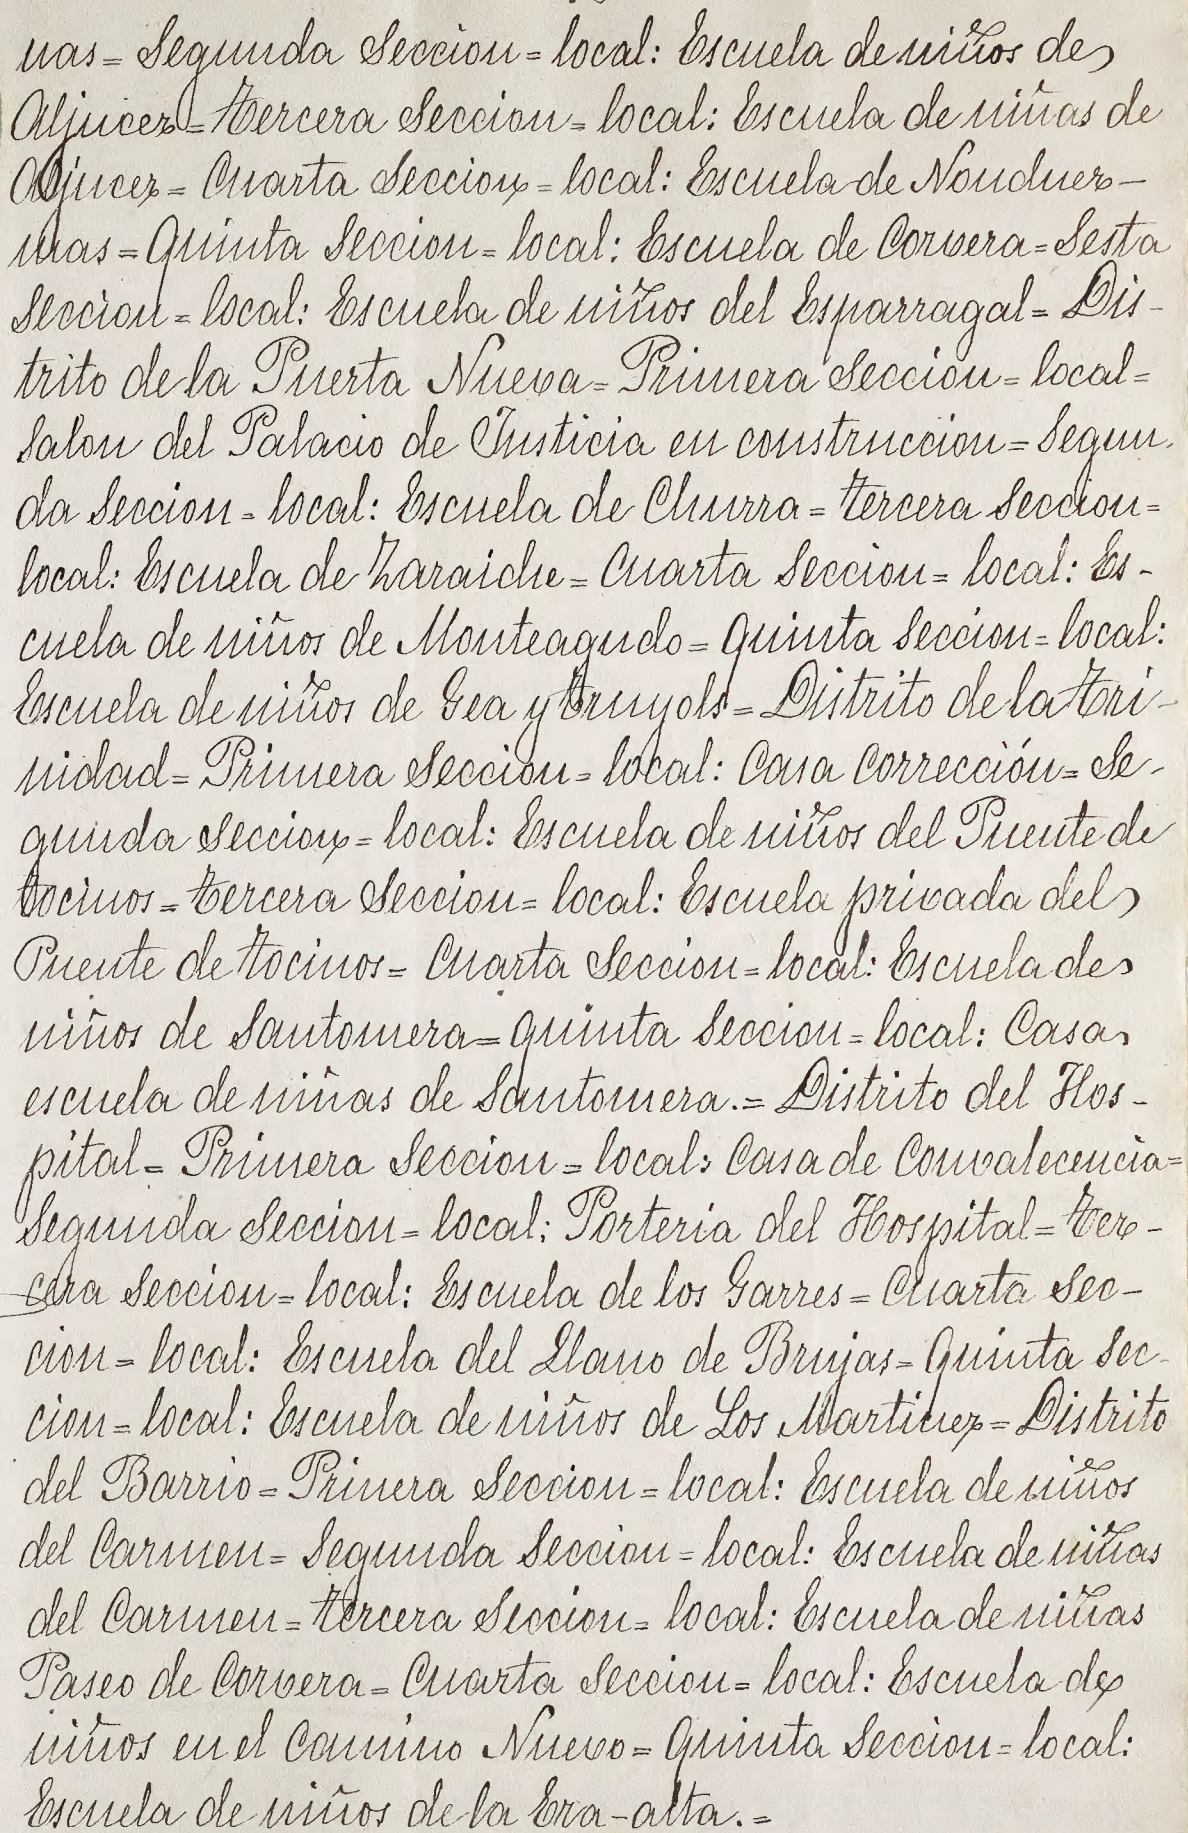 nas = Segunda Seccion = local: Escuela de niños de
Aljucer = tercera Seccion = local: Escuela de niñas de
Aljucer = Cuarta Seccion = local: Escuela de Nonduer-
mas = Quinta Seccion = local: Escuela de Corvera = Sesta
Seccion = local: Escuela de niños del Esparragal = Dis-
trito de la Puerta Nueva = Primera Seccion = local =
Salon del Palacio de Justicia en construccion = Segun-
da Seccion = local: Escuela de Churra = tercera Seccion =
local: Escuela de Zaraiche = Cuarta Seccion = local: Es-
cuela de niños de Monteagudo = Quinta Seccion = local:
Escuela de niños de Gea y truyols = Distrito de la tri-
nidad = Primera Seccion = local: Casa Corrección = Se-
gunda Seccion = local: Escuela de niños del Puente de
tocinos = tercera Seccion = local: Escuela privada del
Puente de tocinos = Cuarta Seccion = local: Escuela de
niños de Santomera = Quinta Seccion = local: Casa
escuela de niñas de Santomera. = Distrito del Hos-
pital = Primera Seccion = local: Casa de Convalecencia =
Segunda Seccion = local: Porteria del Hospital = ter-
cera Seccion = local: Escuela de los Garres = Cuarta Sec-
cion = local: Escuela del Llano de Brujas = Quinta Sec-
cion = local: Escuela de niños de Los Martinez = Distrito
del Barrio = Primera Seccion = local: Escuela de niños
del Carmen = Segunda Seccion = local: Escuela de niñas
del Carmen = tercera Seccion = local: Escuela de niñas
Paseo de Corvera = Cuarta Seccion = local: Escuela de
niños en el Camino Nuevo = Quinta Seccion = local:
Escuela de niños de la Era-alta. =